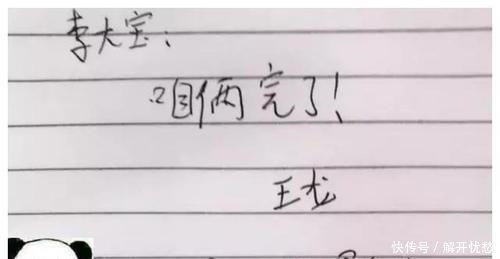 李大宝：
咱俩完了！
王龙
快传号／解开忧愁